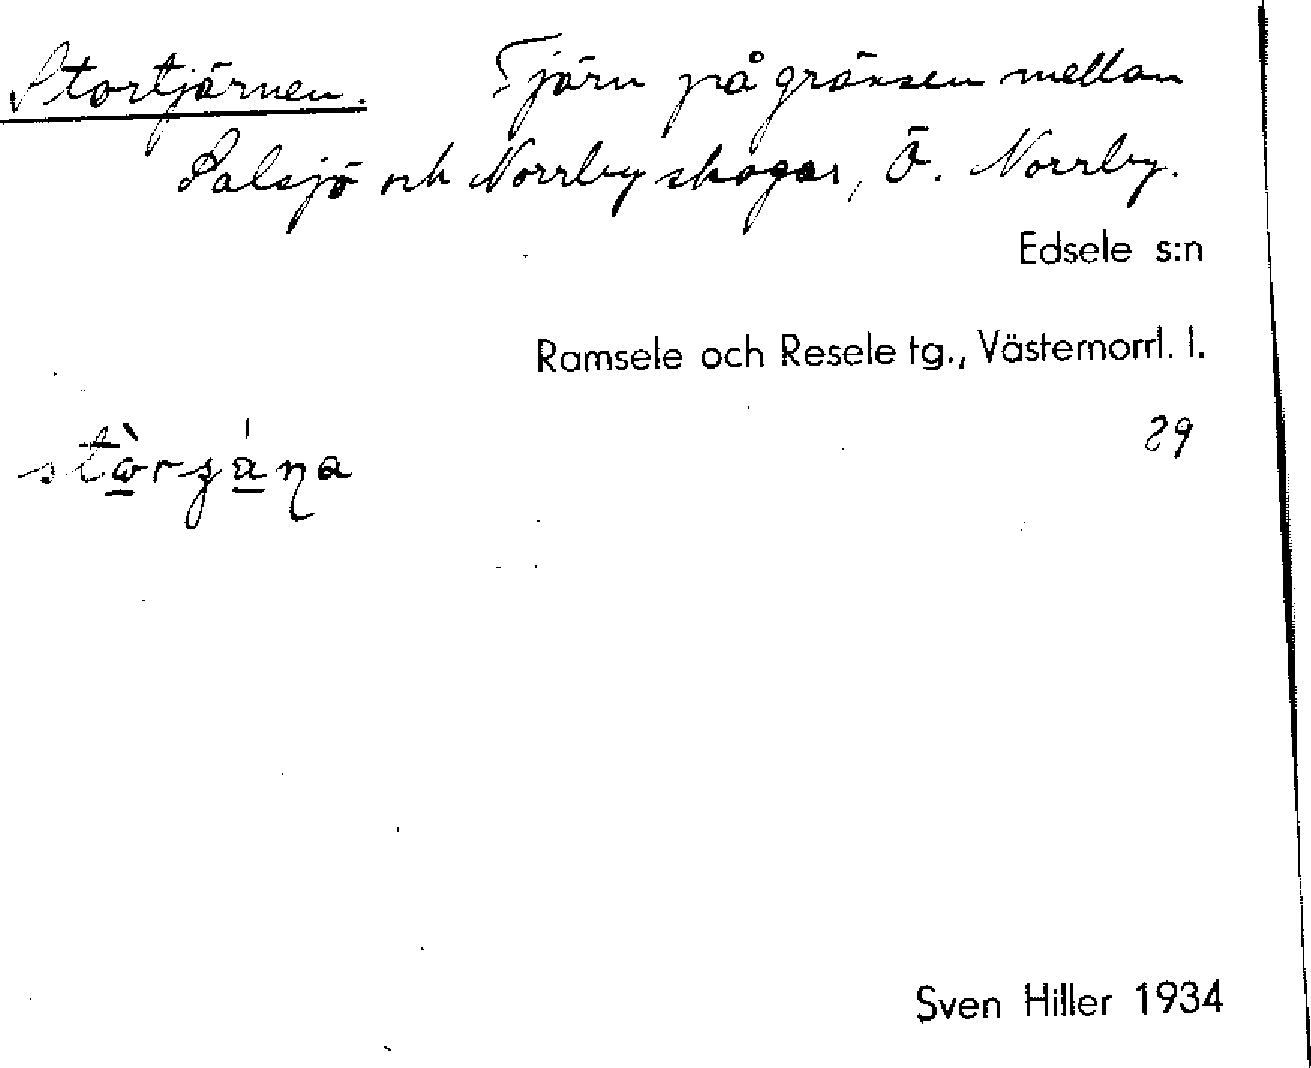 Stortjärnen. Tjärn på gränsen mellan
Salsjö och Norrby skogar, Ö. Norrby.
Edsele s:n
Ramsele och Resele tg., Västernorrl. l.
29
Sven Hiller 1934